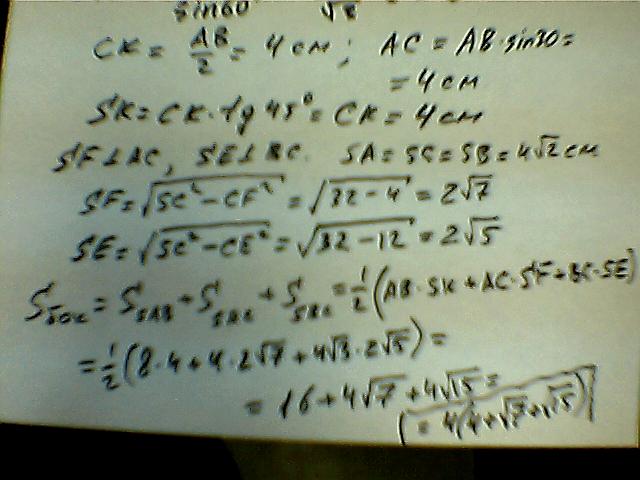 sin60 √3
CK = AB/2 = 4 см; AC = AB·sin30 =
= 4 см
SK = CK·tg 45° = CK = 4 см
SF⊥AC, SE⊥BC. SA = SC = SB = 4√2 см
SF = √(SC² - CF²) = √(32 - 4) = 2√7
SE = √(SC² - CE²) = √(32 - 12) = 2√5
Sбок = S SAB + S SAC + S SBC = 1/2 (AB·SK + AC·SF + BC·SE)
= 1/2 (8·4 + 4·2√7 + 4√3·2√5) =
= 16 + 4√7 + 4√15 =
(= 4(4 + √7 + √15)